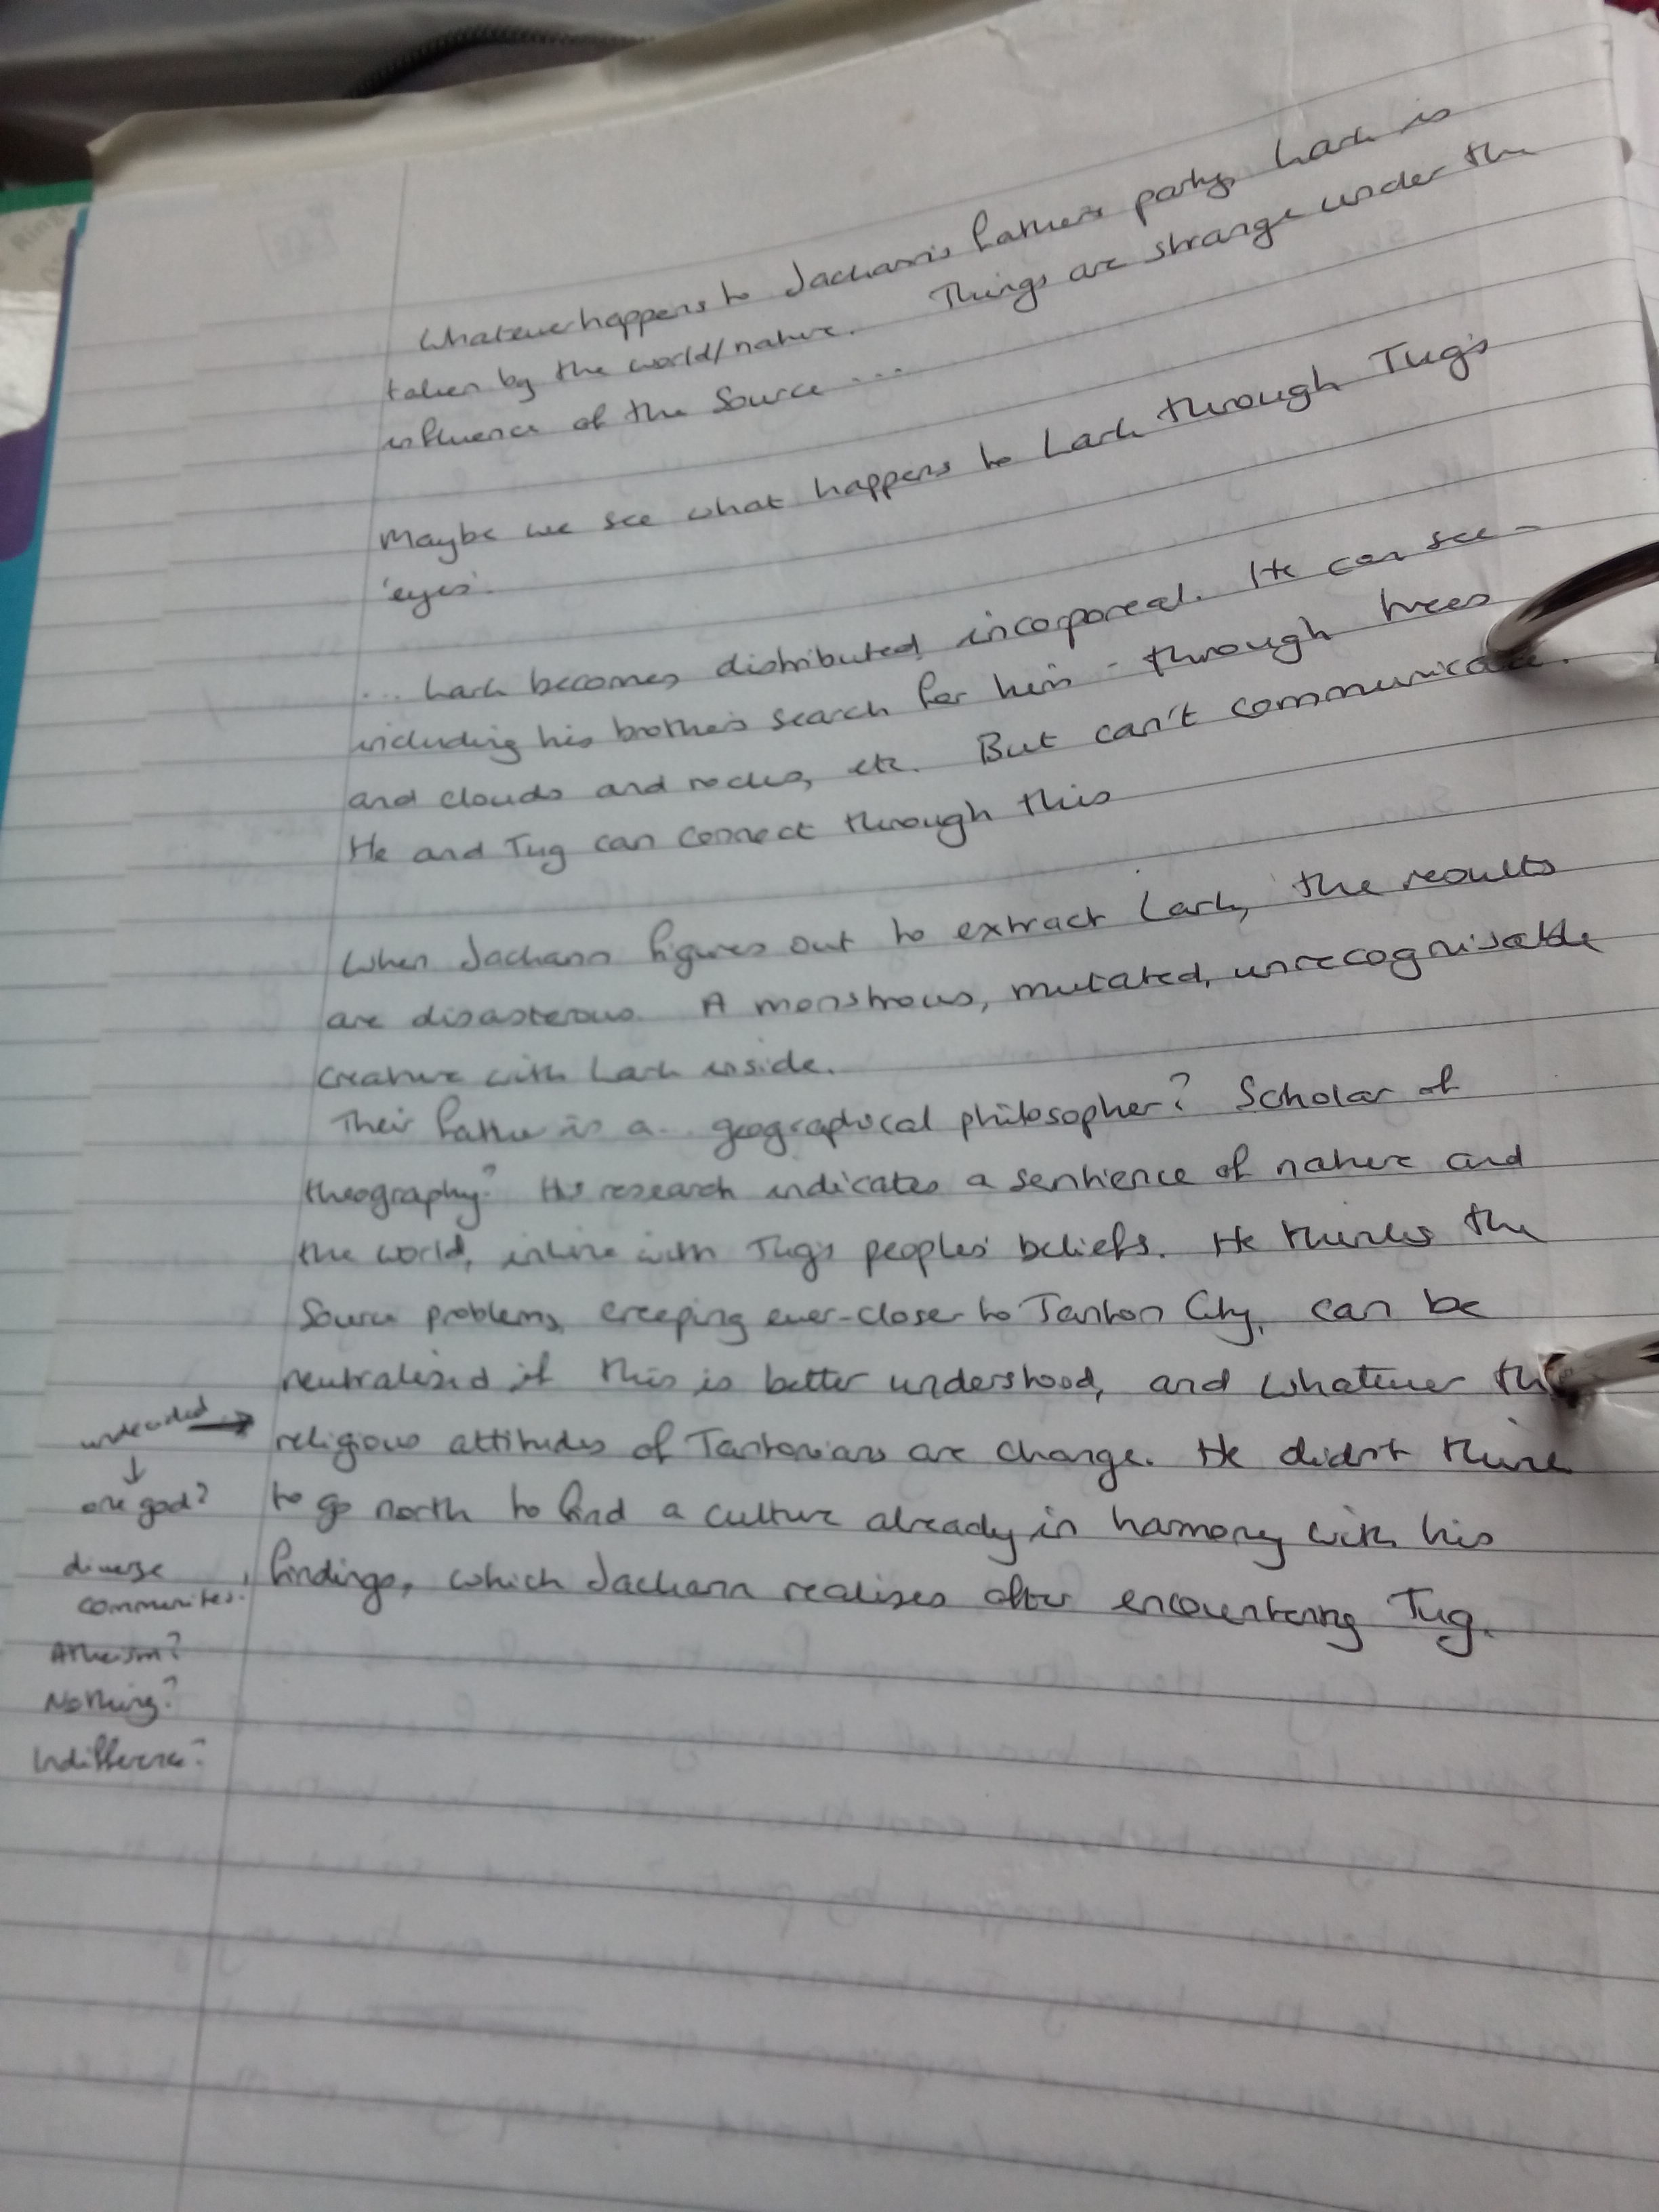 Whatever happens to Jachann's father's party, Lark is
taken by the world/nature. Things are strange under the
influence of the Source ...
Maybe we see what happens to Lark through Tug's
'eyes'.
... Lark becomes distributed, incorporeal. He can see -
including his brother's search for him - through trees
and clouds and rocks, etc. But can't communicate.
He and Tug can connect through this
When Jachann figures out to extract Lark, the results
are disasterous. A monstrous, mutated, unrecognisable
creature with Lark inside.
Their father is a.. geographical philosopher? Scholar of
theography? His research indicates a sentience of nature and
the world, inline with Tug's peoples' beliefs. He thinks the
Source problems, creeping ever-closer to Tanton City, can be
neutralised if this is better understood, and whatever the
religious attitudes of Tantonians are change. He didn't think
to go north to find a culture already in harmony with his
findings, which Jachann realises after encountering Tug.
undecided →
↓
one god?
diverse
communites.
Atheism?
Nothing?
Indifference?